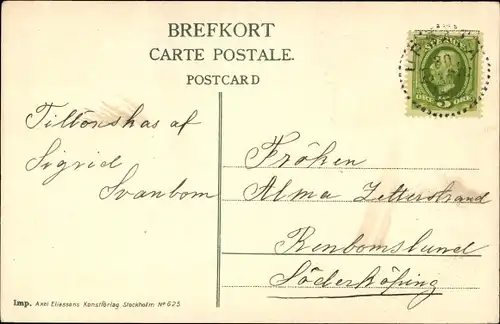 BREFKORT
CARTE POSTALE.
POSTCARD
SVERIGE
ÖRE 5 ÖRE
Tillönskas af
Sigrid
Svanbom
Fröken
Alma Zetterstrand
Renbomslund
Söderköping
Imp. Axel Eliassons Konstförlag. Stockholm Nº 625